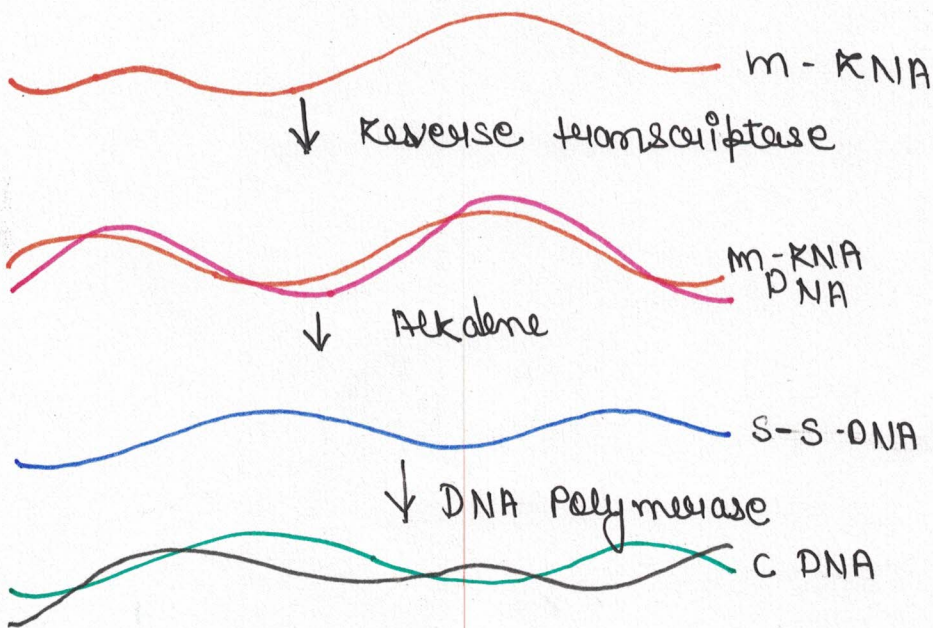 m - RNA
Reverse transcriptase
m-RNA
DNA
Alkalene
S-S-DNA
DNA Polymerase
C DNA